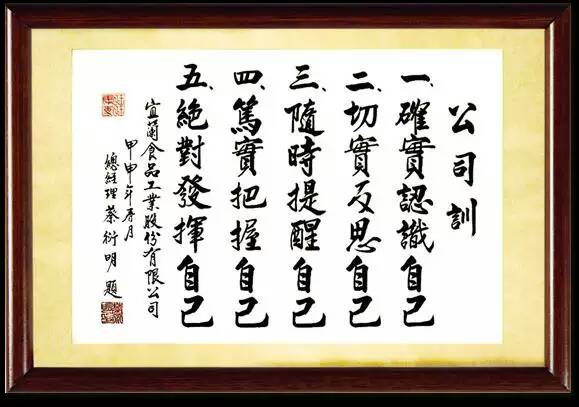 公司訓
一、確實認識自己
二、切實反思自己
三、隨時提醒自己
四、篤實把握自己
五、絕對發揮自己
宜蘭食品工業股份有限公司
甲申年 月
總經理蔡衍明題